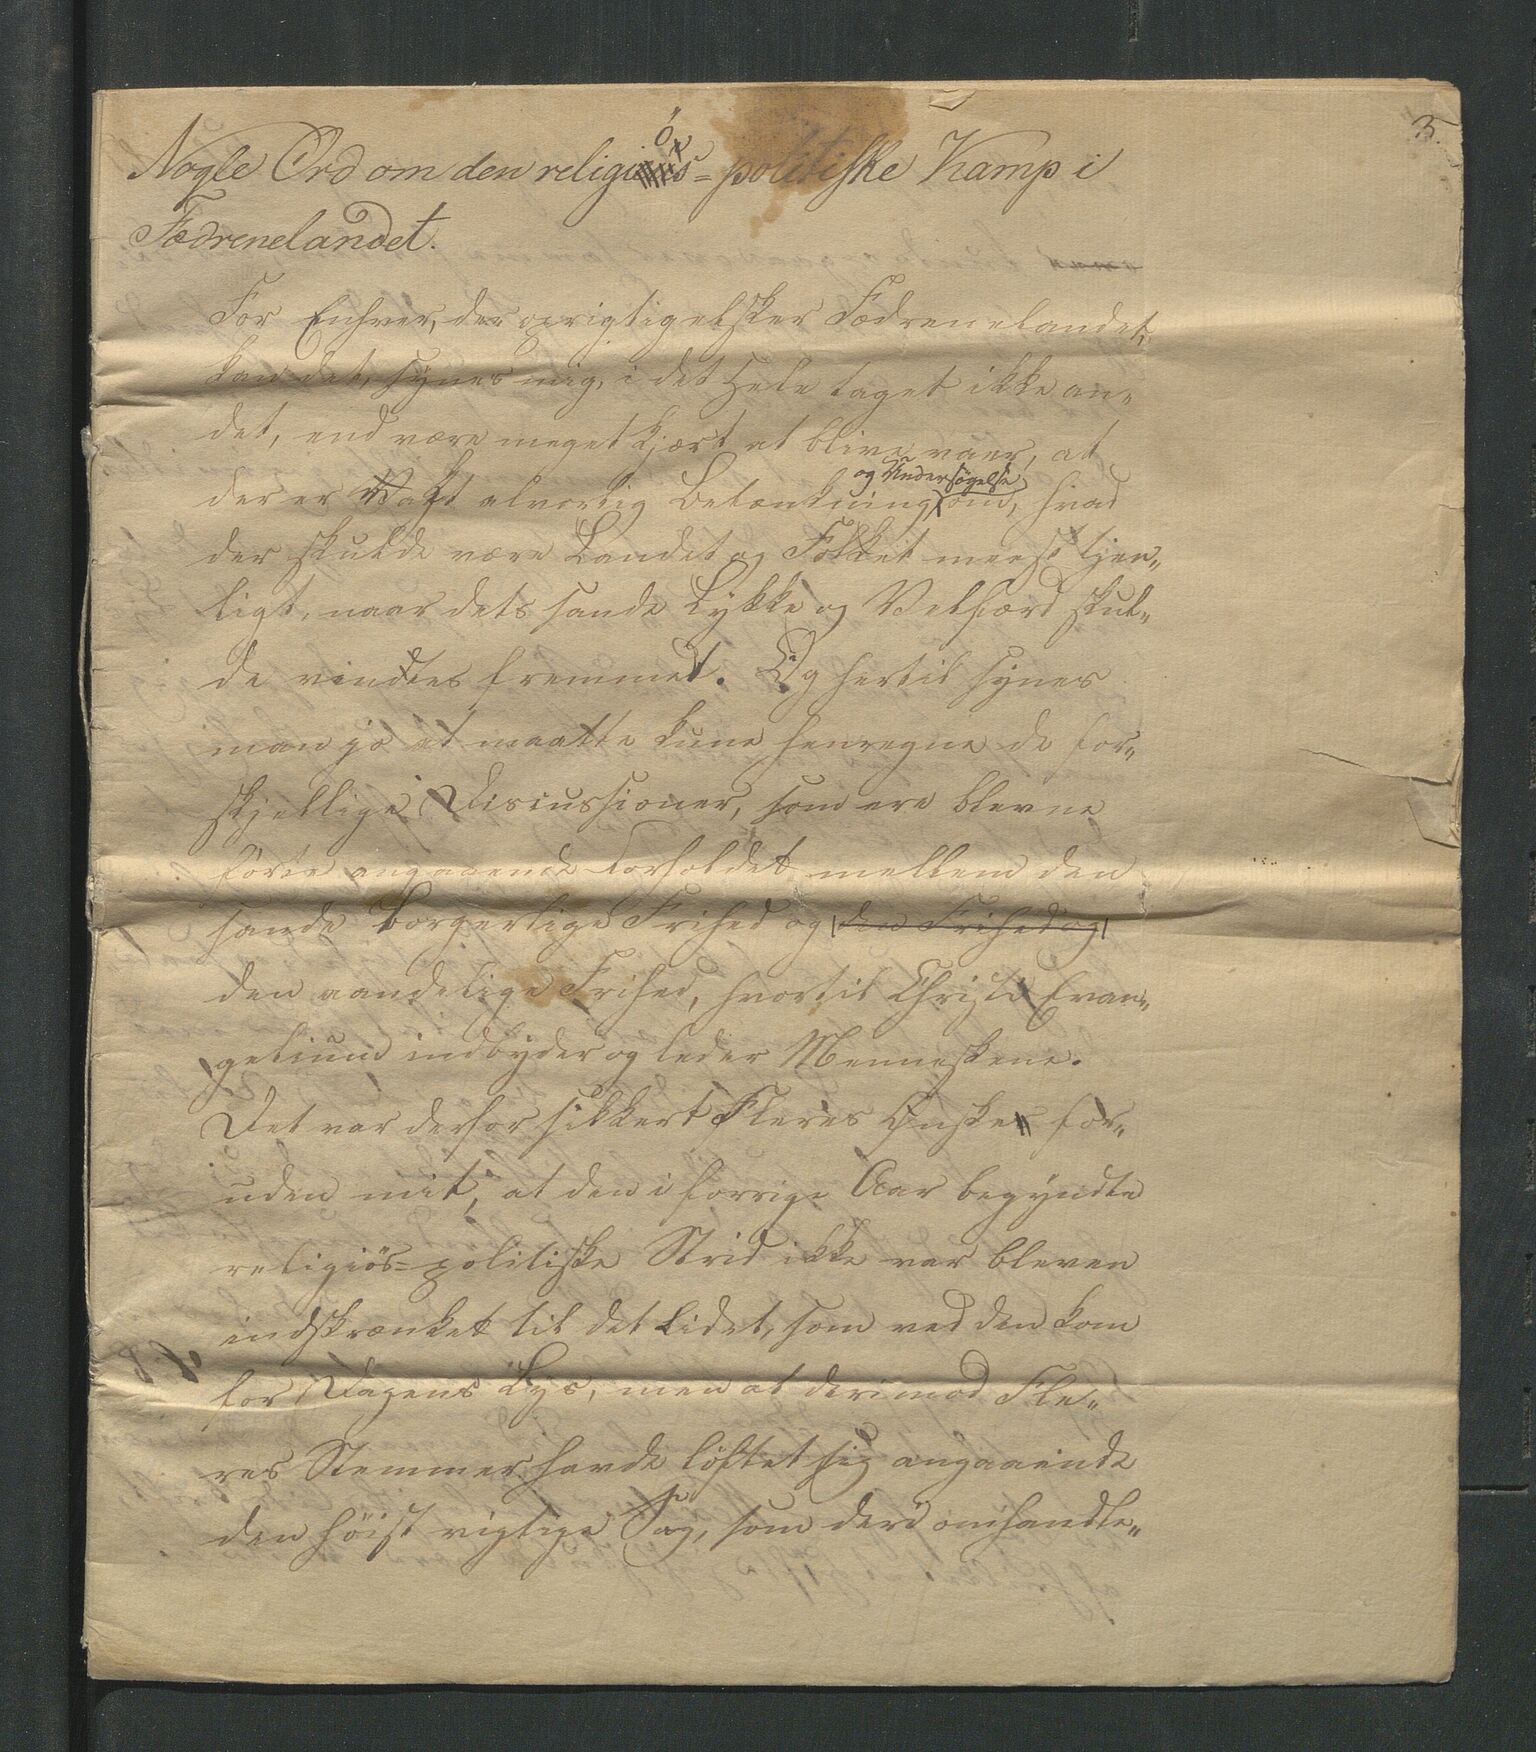 3.
Nogle Ord om den religiös-politiske Kamp i
Fædrenelandet.
For Enhver, der oprigtig elsker Fædrenelandet,
kan det, synes mig, i det Hele taget ikke an-
det, end være meget kjært at blive vaer, at
der er Vakt alvorlig Betænkning og Undersøgelse om, hvad
der skulde være Landet og Folket meest tjen-
ligt, naar dets sande Lykke og Velfærd skul-
de vindes fremmet. Og hertil synes
man jo at maatte kune henregne de for-
skjellige Discussioner, som ere blevne
førte angaaende Forholdet mellem den
sande borgerlige Frihed og den Frihed og
den aandelige Frihed, hvortil Christi Evan-
gelium indbyder og leder Menneskene.
Det var derfor sikkert Fleres Ønske for-
uden mit, at den i forrige Aar begyndte
religiös-politiske Strid ikke var bleven
indskrænket til det Lidet, som ved den kom
for Dagens Lys, men at derimod Fle-
res Stemmer havde löftet sig angaaende
den höist vigtige Sag, som deri omhandle-